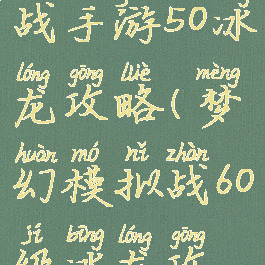 战手游50冰
lóng gōng lüè mèng
龙攻略(梦
huàn mó nǐ zhàn
幻模拟战60
jí bīng lóng gōng
级冰龙攻